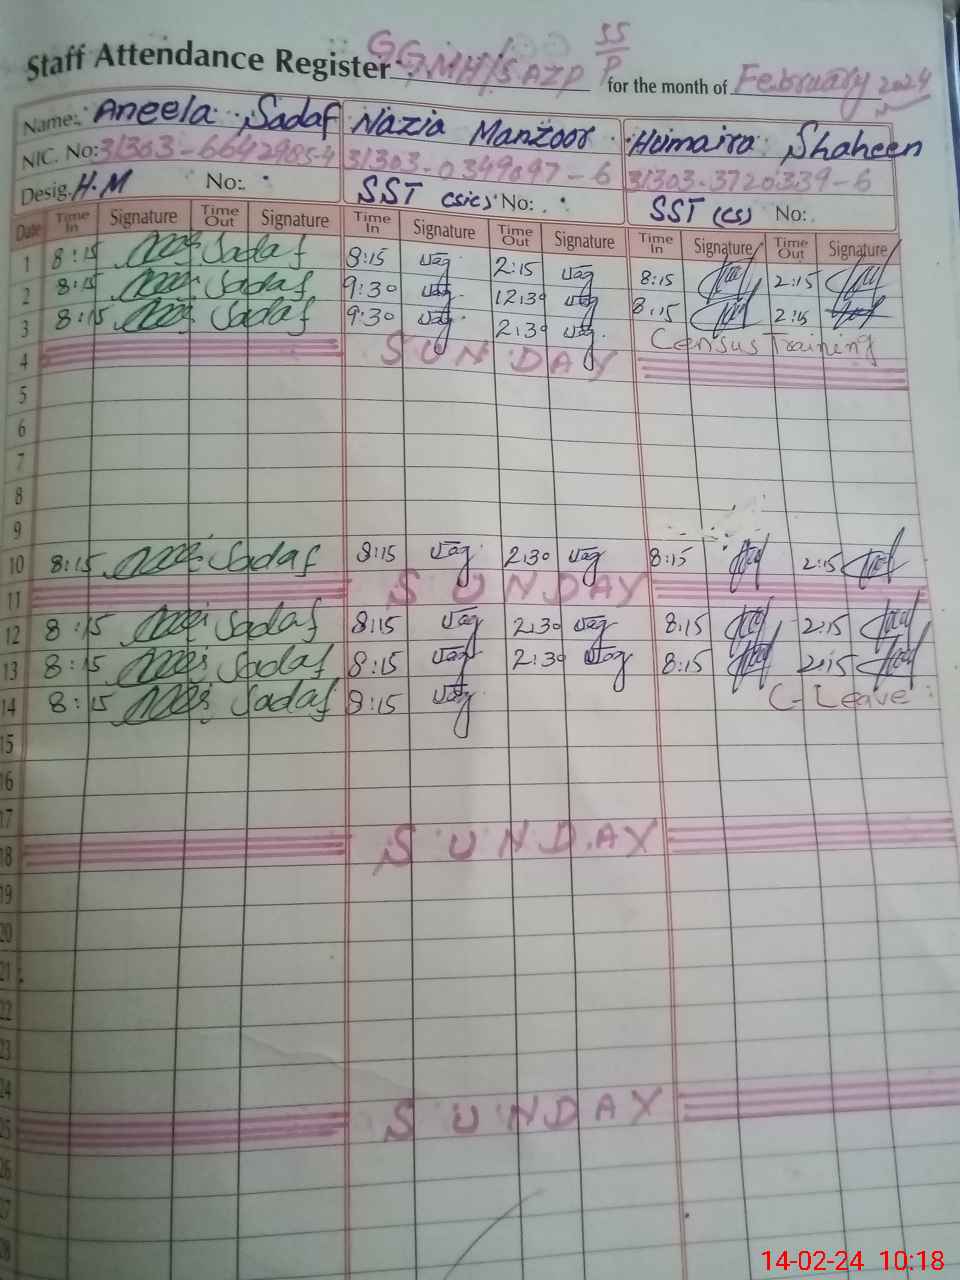 Staff Attendance Register GGMH/S AZP 55/P for the month of February 2024
Name: Aneela Sadaf Nazia Manzoor Humaira Shaheen
NIC. No: 31303-6642985-4 31303-0349097-6 31303-3720339-6
Desig. H.M No: SST (sic) No: SST (CS) No:
Date Time In Signature Time Out Signature Time In Signature Time Out Signature Time In Signature Time Out Signature
1 8:15 Sadaf 8:15 2:15 8:15 2:15
2 8:15 Sadaf 9:30 12:30 8:15 2:15
3 8:15 Sadaf 9:30 2:30 Census Training
4 SUNDAY
5
6
7
8
9
10 8:15 Sadaf 8:15 2:30 8:15 2:15
11 SUNDAY
12 8:15 Sadaf 8:15 2:30 8:15 2:15
13 8:15 Sadaf 8:15 2:30 8:15 2:15
14 8:15 Sadaf 8:15 C-Leave
15
16
17
18 SUNDAY
19
20
21
22
23
24
25 SUNDAY
26
27
28
14-02-24 10:18